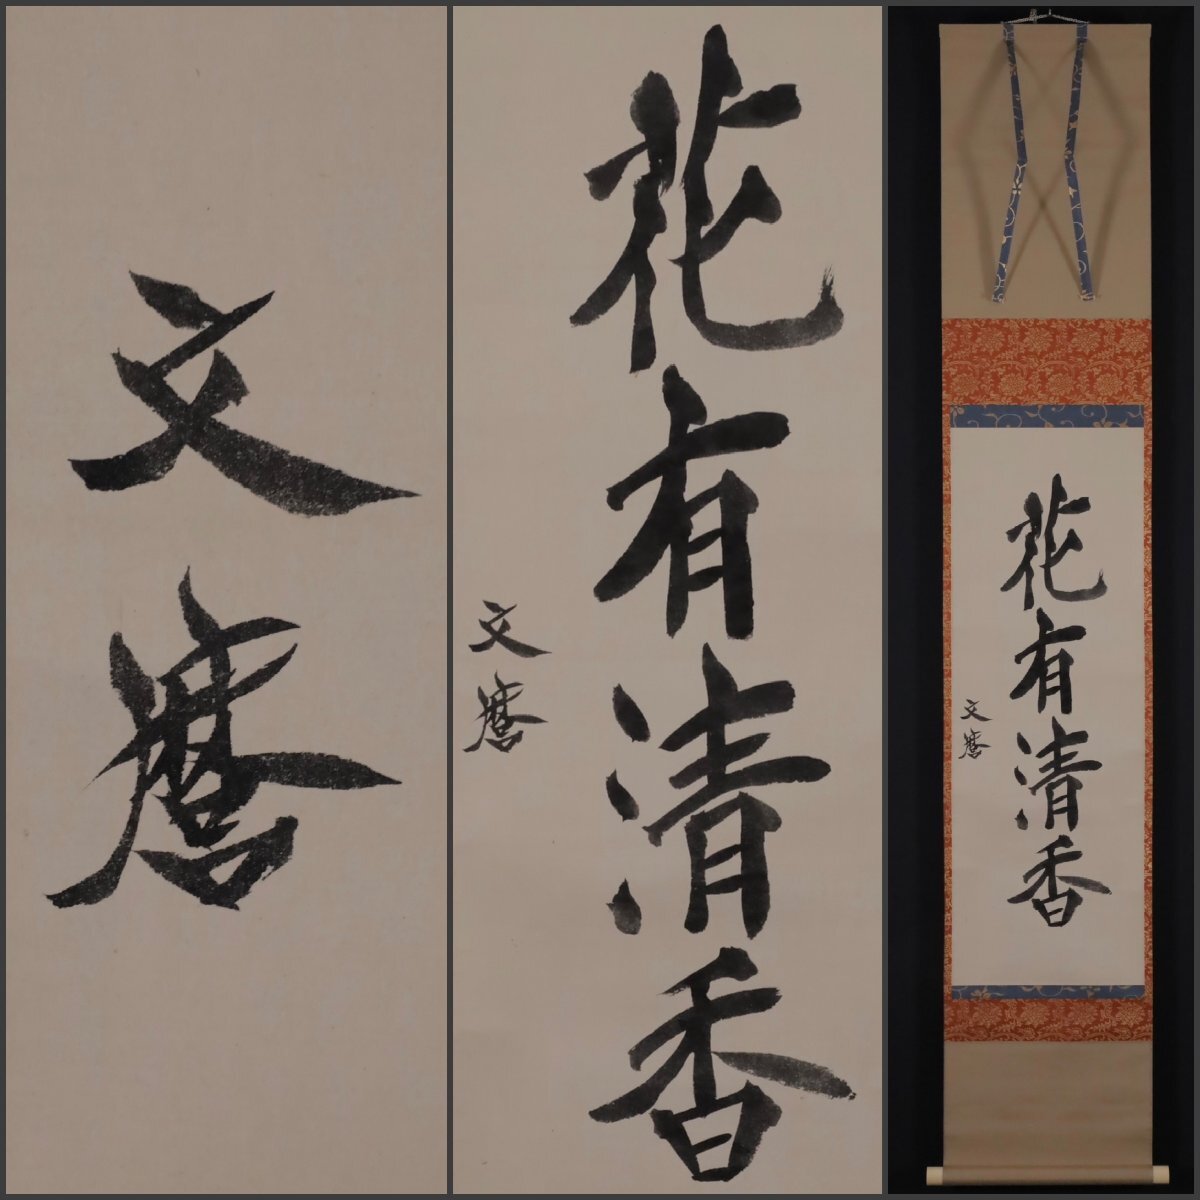 文麿
花有清香
文麿
花有清香
文麿